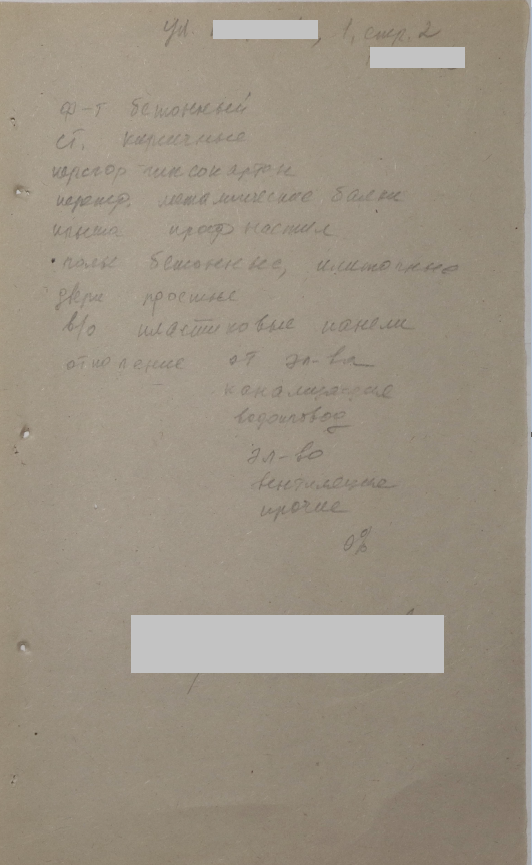 ул. , 1, стр. 2
ф-т бетонный
ст. кирпичные
перегор гипсокартон
перекр. металлические балки
крыша профнастил
полы бетонные, плиточные
двери простые
в/о пластиковые панели
отопление от эл-ва
канализация
водопровод
эл-во
вентиляция
прочие
0%